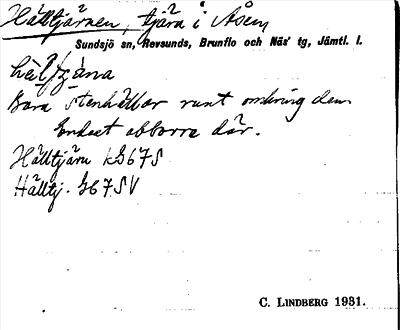 Hälltjärnen, tjärn i Åsen
Sundsjö sn, Revsunds, Brunflo och Näs' tg, Jämtl. l.
Bara stenhällar runt omkring den.
Endast abborre där.
Hälltjärn kG67S
Hälltj. G67SV
C. LINDBERG 1931.